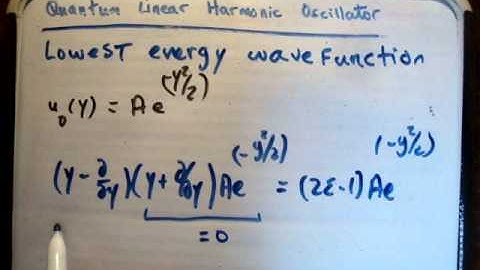 Quantum Linear Harmonic Oscillator
Lowest energy wave Function
u₀(y) = Ae^(y²/2)
(y - ∂/∂y)(y + ∂/∂y)Ae^(-y²/2) = (2ε-1)Ae^(-y²/2)
= 0